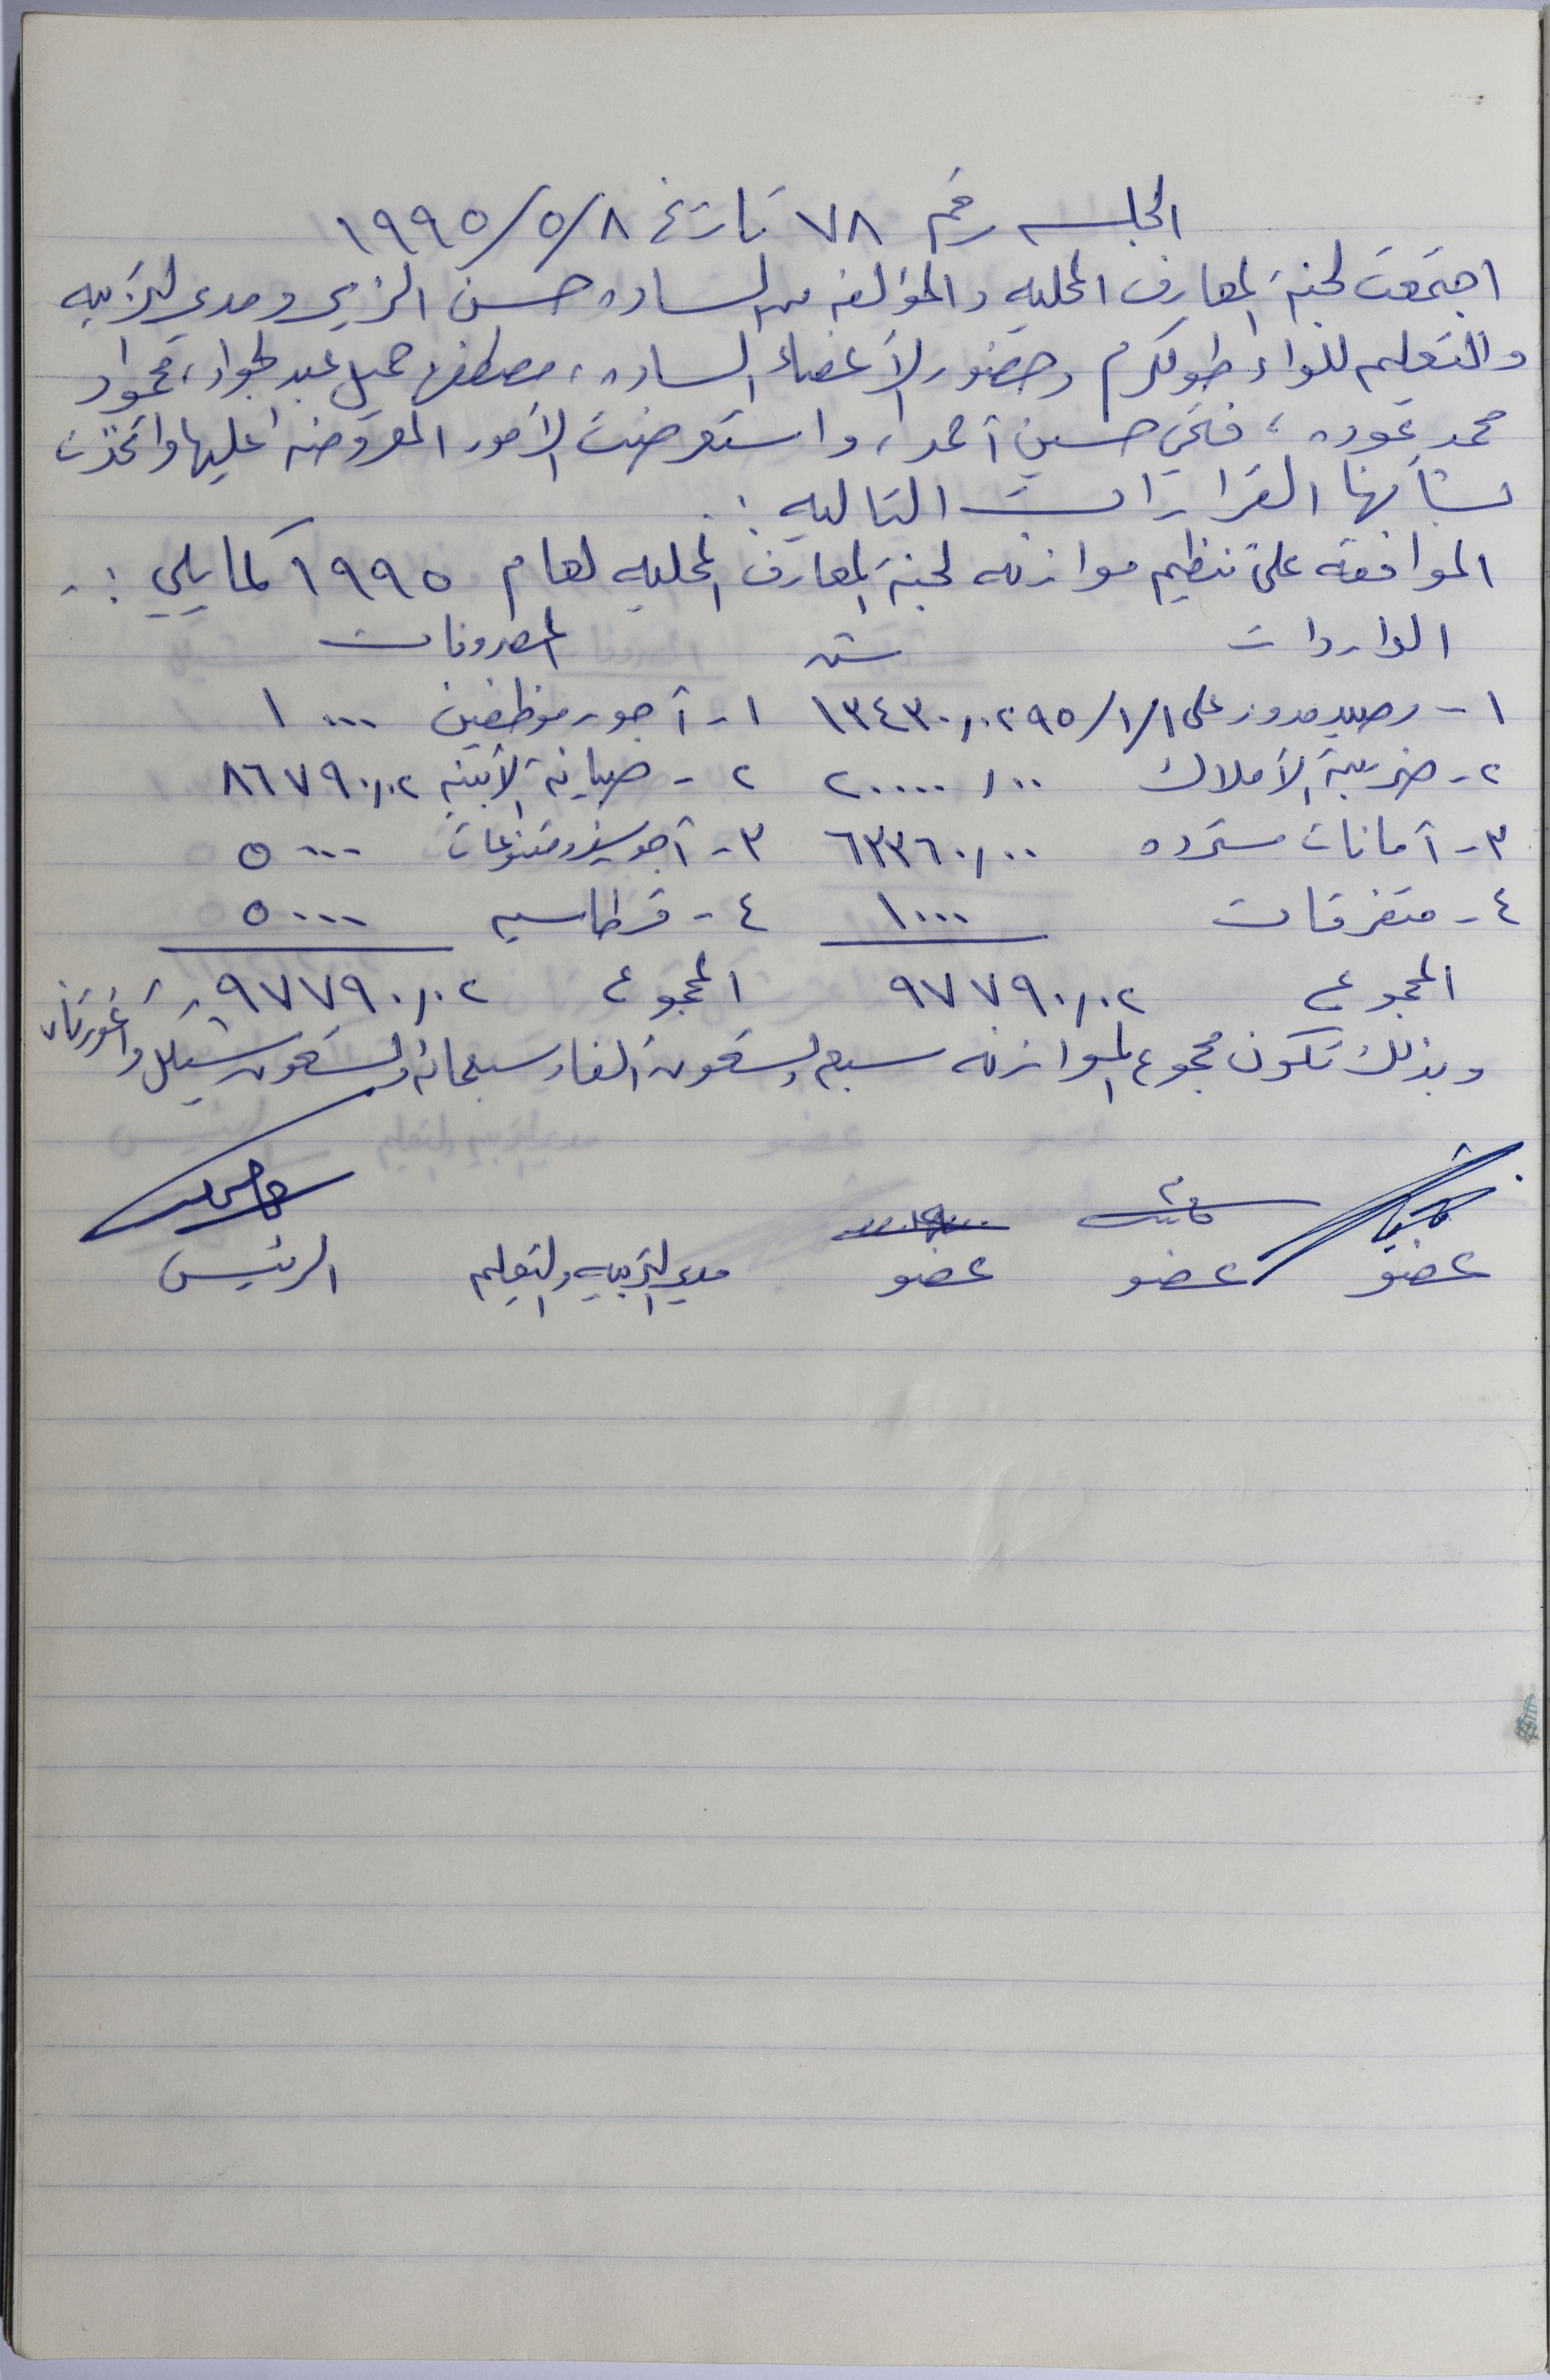 الجلسه رقم ٧٨ تاريخ ١٩٩٥/٥/٨
اجتمعت لجنة المعارف المحليه والمؤلفه من الساده حسن الزير ومدير التربيه
والتعليم للواء طولكرم وحضور الأعضاء الساده، مصطفى جميل عبد الجواد، محمود
محمد عوده، فتحي حسين أحمد، واستعرضت الأمور المعروضه عليها واتخذت
بشأنها القرارات التاليه :
الموافقه على تنظيم موازنه لجنة المعارف المحليه لعام ١٩٩٥ كما يلي :-
الواردات المصروفات
١- رصيد مدور على ٩٥/١/١ ١٣٤٣٠/٠٢ ١- أجور موظفين ١٠٠٠
٢- ضريبة الأملاك ٢٠٠٠٠/٠٠ ٢- صيانة الأبنيه ٨٦٧٩٠/٠٢
٣- أمانات مسترده ٦٣٣٦٠/٠٠ ٣- أجور سفر ومتنوعات ٥٠٠٠
٤- متفرقات ١٠٠٠ ٤- قرطاسيه ٥٠٠٠
المجموع ٩٧٧٩٠/٠٢ المجموع ٩٧٧٩٠/٠٢
وبذلك تكون مجموع الموازنه سبع وتسعون الفا وسبعمائه وتسعون شيكل واغورتان
عضو عضو عضو مدير التربيه والتعليم الرئيس